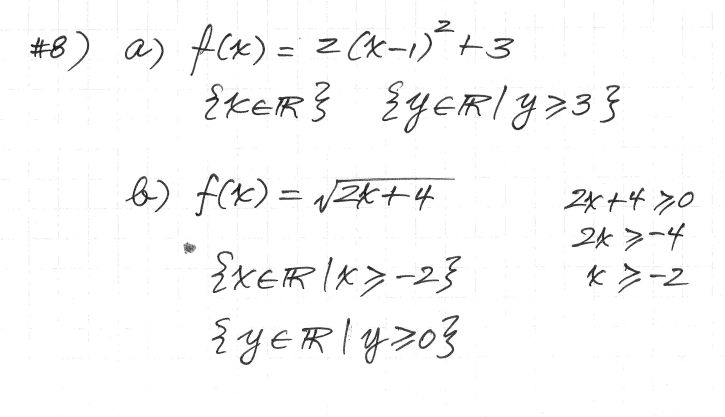 #8) a) f(x) = 2(x-1)² + 3
{x∈ℝ} {y∈ℝ | y ⩾ 3}
b) f(x) = √(2x+4)
2x+4 ⩾ 0
2x ⩾ -4
{x∈ℝ | x ⩾ -2}
x ⩾ -2
{y∈ℝ | y ⩾ 0}